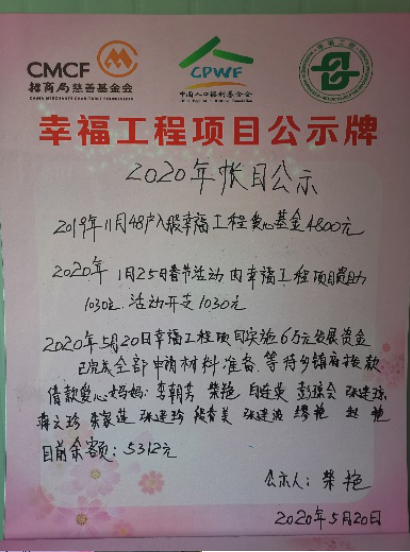 CMCF
招商局慈善基金会
CHINA MERCHANTS CHARITABLE FOUNDATION
CPWF
中国人口福利基金会
幸福工程
幸福工程项目公示牌
2020年帐目公示
2019年11月48户入股幸福工程爱心基金4800元
2020年1月25日春节活动由幸福工程项目资助
1030元.活动开支1030元
2020年5月20日幸福工程项目实施6万元发展资金
已完成全部申请材料准备.等待乡镇府拨款
借款爱心妈妈:李朝芳 柴艳 自连英 彭琼会 张建琼
蒋文珍 张家莲 张建珍 段春美 张建波 缪艳 赵艳
目前余额:5312元
公示人:柴艳
2020年5月20日